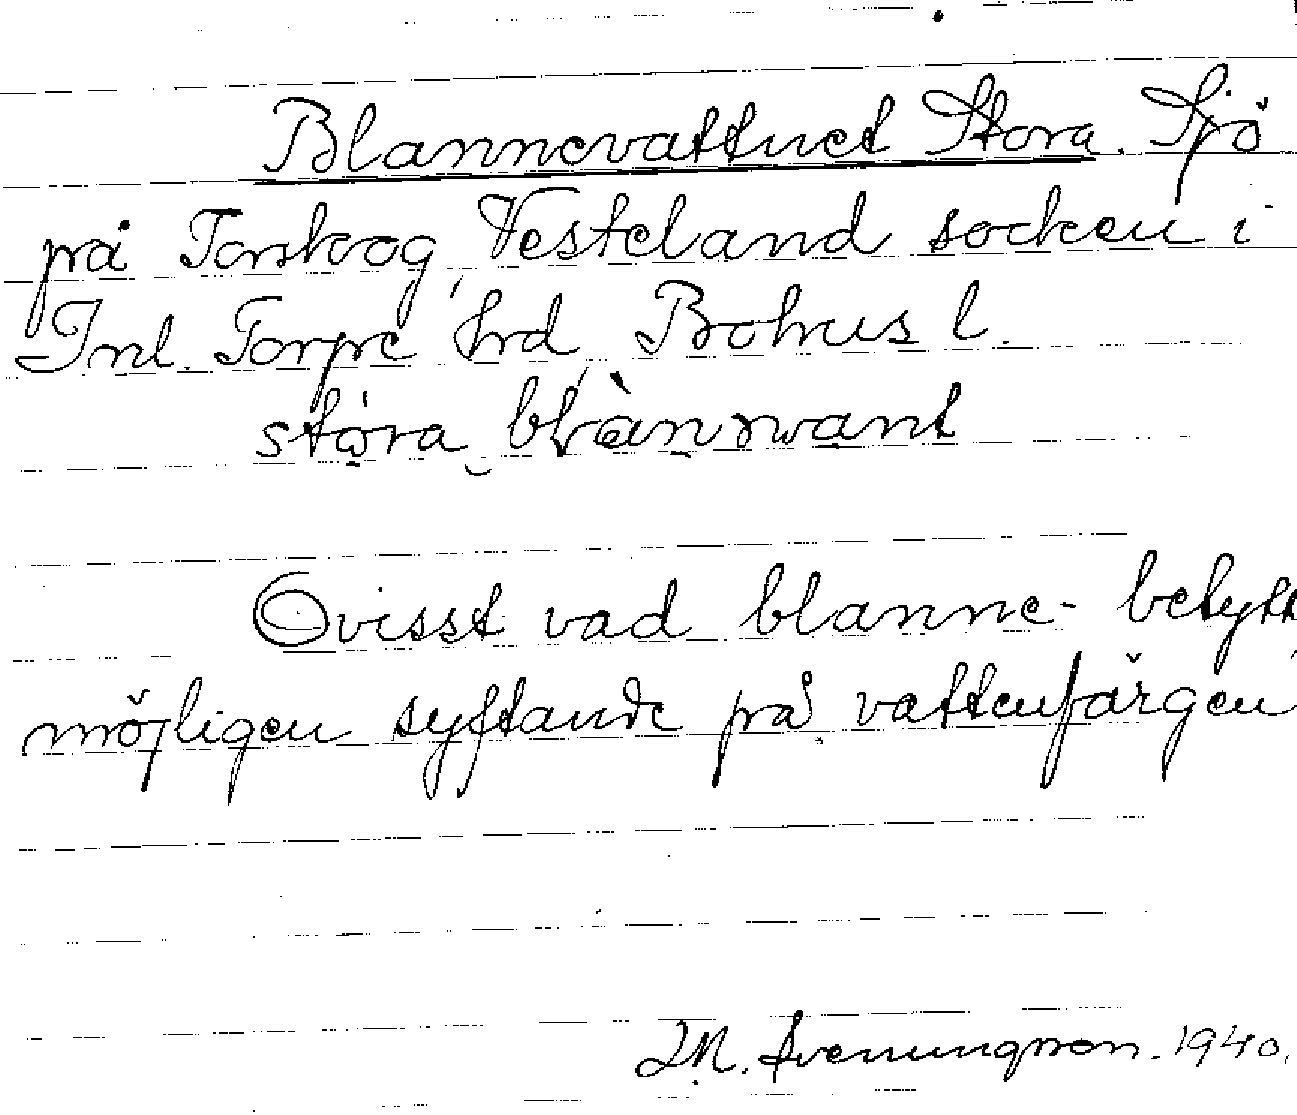 Blannevattnet Stora. Sjö
på Torskog, Vesteland socken i
Inl. Torpe hrd, Bohus l.
stora blannvant
Ovisst vad blanne- betytt
möjligen syftande på vattenfärgen
J.M. Svenungsson. 1940.